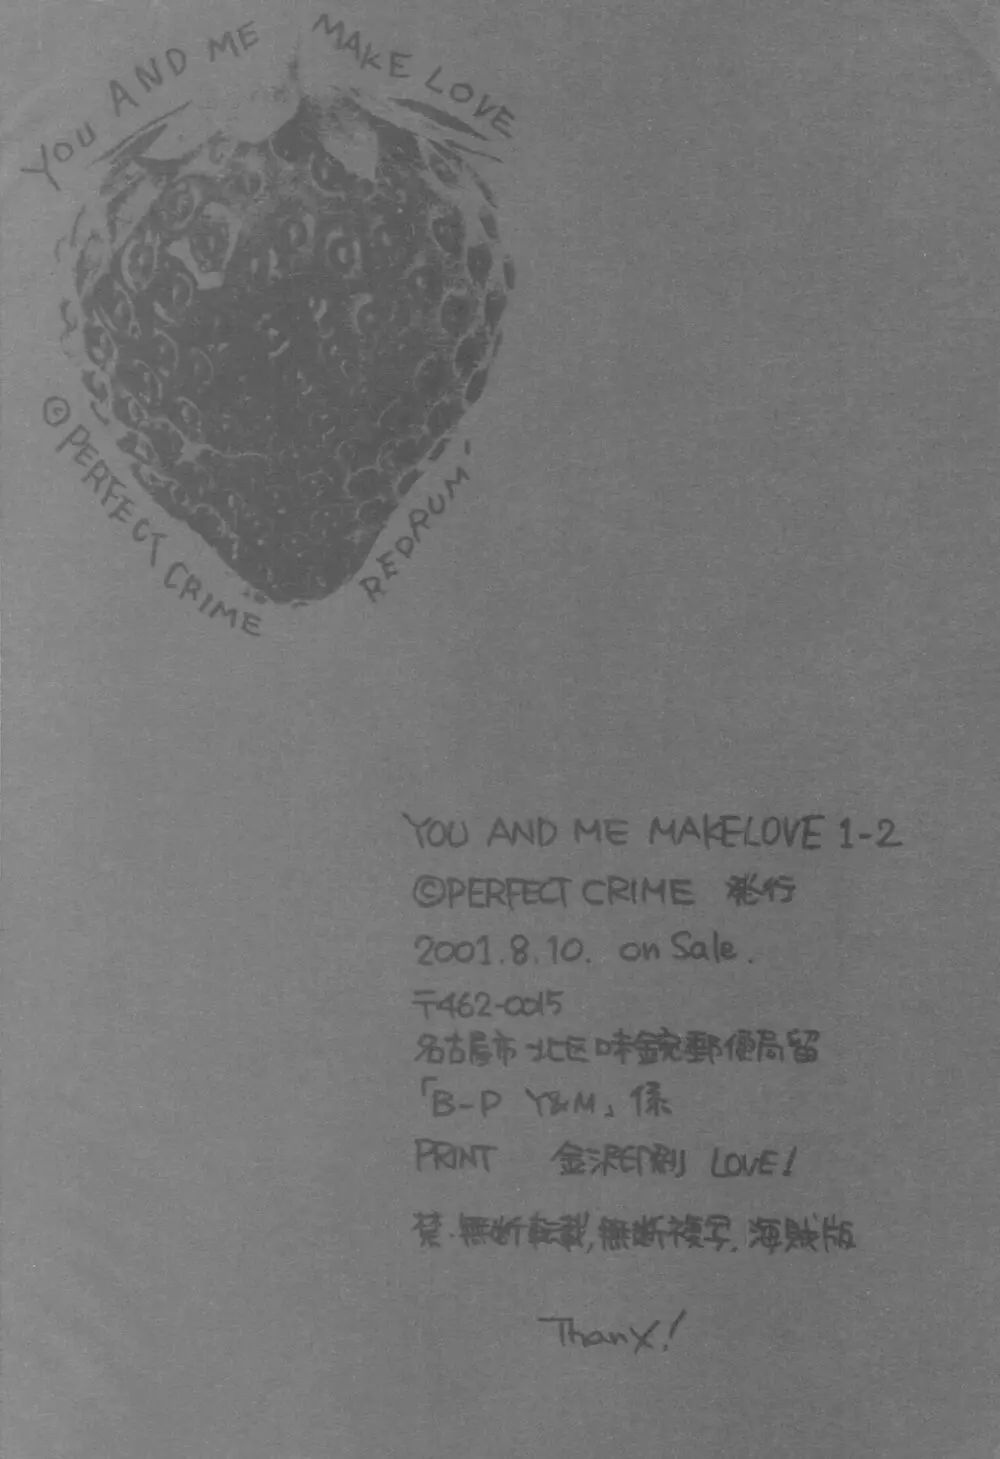 YOU AND ME MAKE LOVE
©PERFECT CRIME REDRUM'
YOU AND ME MAKELOVE 1-2
©PERFECT CRIME 発行
2001.8.10. on Sale.
〒462-0015
名古屋市北区味鋺郵便局留
「B-P Y&M」係
PRINT 金沢印刷 LOVE!
禁・無断転載,無断複写,海賊版
ThanX!